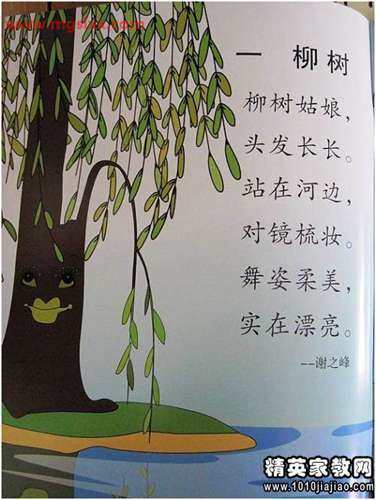 一 柳树
柳树姑娘，
头发长长。
站在河边，
对镜梳妆。
舞姿柔美，
实在漂亮。
--谢之峰
精英家教网
www.1010jiajiao.com